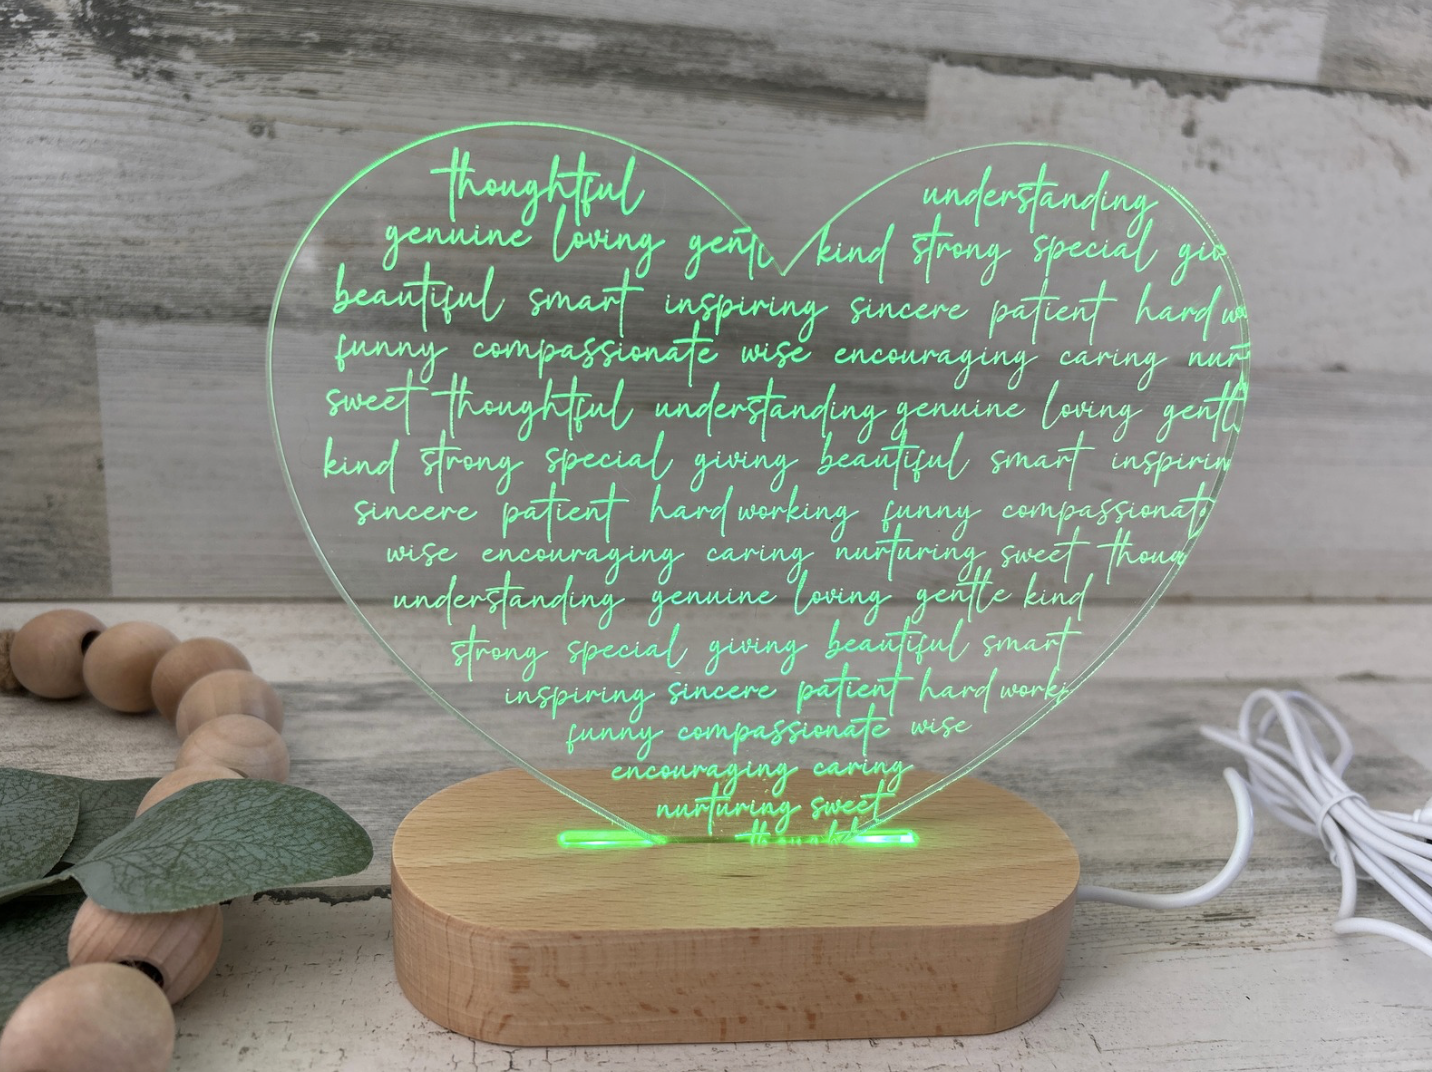 thoughtful understanding
genuine loving gentl kind strong special giv
beautiful smart inspiring sincere patient hard wo
funny compassionate wise encouraging caring nurt
sweet thoughtful understanding genuine loving gentle
kind strong special giving beautiful smart inspirin
sincere patient hard working funny compassionate
wise encouraging caring nurturing sweet thoug
understanding genuine loving gentle kind
strong special giving beautiful smart
inspiring sincere patient hard worki
funny compassionate wise
encouraging caring
nurturing sweet